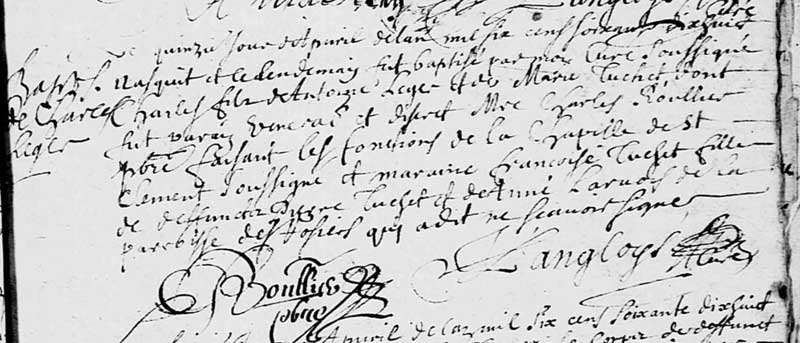 Le quinziesme jour d'Apvril de l'an mil six cens soixante dixhuict
Bapt. nasquit et le lendemain fut baptisé par moy curé soussigné
de Charles Charles filz de Antoine Leger et de Marie Tuchet dont
Leger fut parain venerable et discret Mre Charles Roullier
pbre faisant les fonctions de la Chapelle de St
Clement soussigné et maraine Francoise Tuchet fille
de deffunct Pierre Tuchet et de Anne de la
paroisse des Rosiers qui a dit ne scavoir signer
Roullier Langloys
pbre Curé
Apvril de l'an mil six cens soixante dixhuict
le corps de deffunct